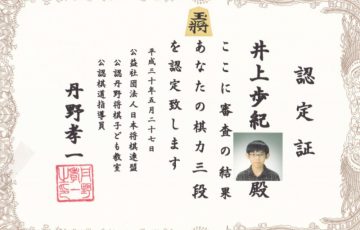 王将
認定証
井上歩紀殿
ここに審査の結果
あなたの棋力三段
を認定致します
平成三十年五月二十七日
公益社団法人日本将棋連盟
公認丹野将棋子ども教室
公認棋道指導員
丹野孝一